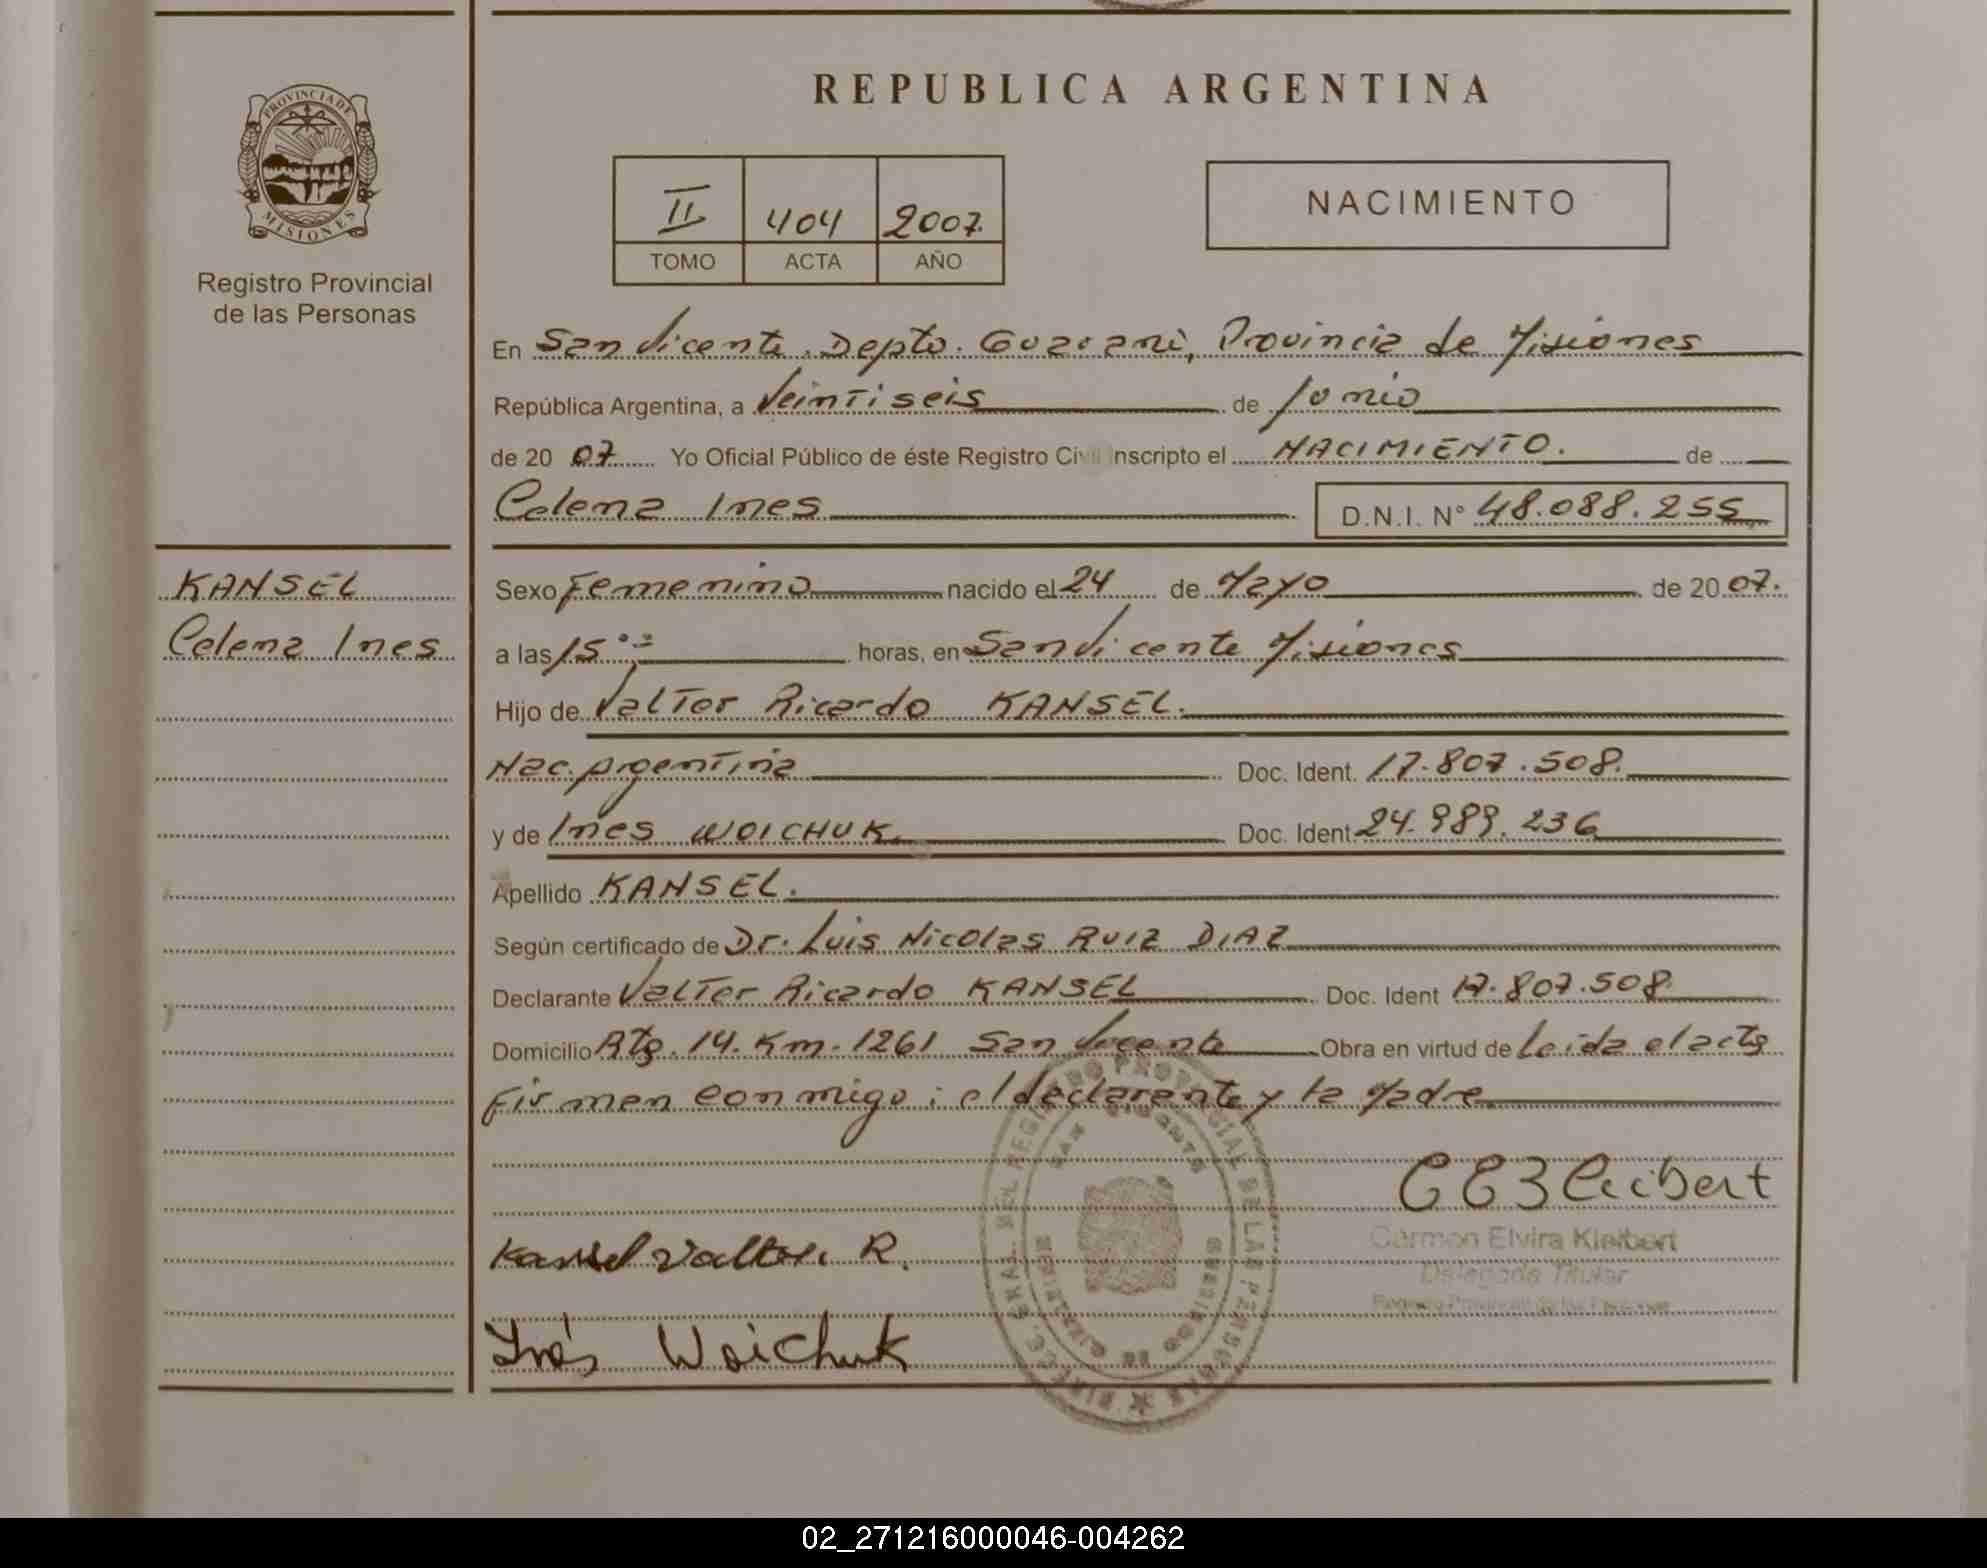 REPUBLICA ARGENTINA
PROVINCIA DE MISIONES
Registro Provincial
de las Personas
II 404 2007.
TOMO ACTA AÑO
NACIMIENTO
En San Vicente. Depto. Guarani, Provincia de Misiones
República Argentina, a Veintiseis de Junio
de 20 07 Yo Oficial Público de éste Registro Civil inscripto el NACIMIENTO. de
Celena Ines D.N.I. N° 48.088.255
KANSEL
Celena Ines
Sexo Femenino nacido el 24 de Mayo de 20 07.
a las 15 °° horas, en San Vicente Misiones
Hijo de Valter Ricardo KANSEL.
Nac. Argentina Doc. Ident. 17.807.508.
y de Ines WOICHUK. Doc. Ident. 24.989.236
Apellido KANSEL.
Según certificado de Dr. Luis Nicolas RUIZ DIAZ
Declarante Valter Ricardo KANSEL Doc. Ident 17.807.508
Domicilio Rta. 14. Km. 1261 San Vicente Obra en virtud de Leida el acta
Firman conmigo: el declarante y la Madre
Kansel Valter R.
Inés Woichuk
Carmen Elvira Kleibert
Delegada Titular
Registro Provincial de las Personas
02_271216000046-004262